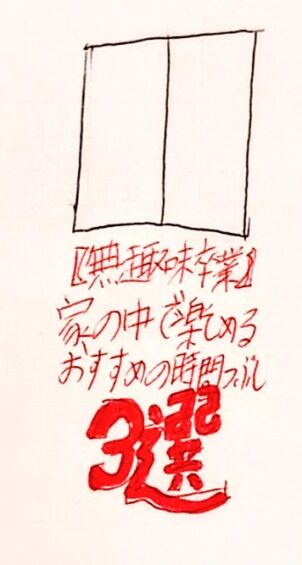 【無趣味卒業】
家の中で楽しめる
おすすめの時間つぶし
3選